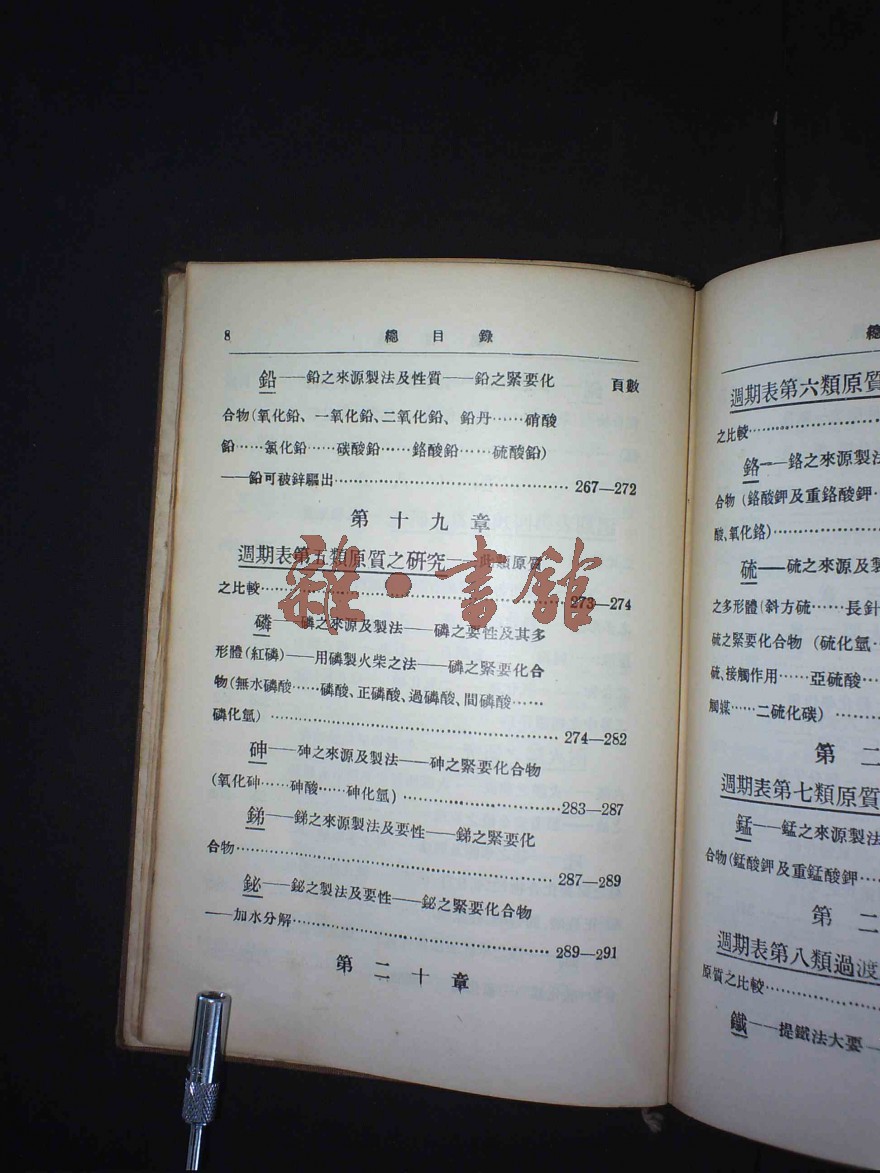 8 總目錄
鉛——鉛之來源製法及性質——鉛之緊要化 頁數
合物(氧化鉛、一氧化鉛、二氧化鉛、鉛丹……硝酸
鉛……氯化鉛……碳酸鉛……鉻酸鉛……硫酸鉛)
——鉛可被鋅驅出…………267—272
第十九章
週期表第五類原質之研究——此類原質
之比較…………273—274
磷——磷之來源及製法——磷之要性及其多
形體(紅磷)——用磷製火柴之法——磷之緊要化合
物(無水磷酸……磷酸、正磷酸、過磷酸、間磷酸……
磷化氫)…………274—282
砷——砷之來源及製法——砷之緊要化合物
(氧化砷……砷酸……砷化氫)…………283—287
銻——銻之來源製法及要性——銻之緊要化
合物…………287—289
鉍——鉍之製法及要性——鉍之緊要化合物
——加水分解…………289—291
第二十章
雜·書館
總
週期表第六類原質
之比較…………
鉻——鉻之來源製法
合物(鉻酸鉀及重鉻酸鉀…
酸、氧化鉻)…………
硫——硫之來源及製
之多形體(斜方硫……長針
硫之緊要化合物(硫化氫…
硫、接觸作用……亞硫酸…
觸媒……二硫化碳)………
第二
週期表第七類原質
錳——錳之來源製法
合物(錳酸鉀及重錳酸鉀…
第二
週期表第八類過渡
原質之比較…………
鐵——提鐵法大要—